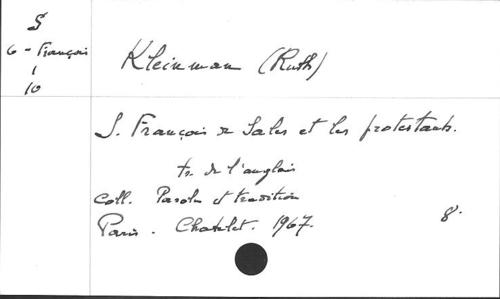 S
6 - François
1
10
Kleinman (Ruth)
S. François de Sales et les protestants.
tr. de l'anglais
Coll. Parole et tradition
Paris. Chatelet. 1967. 8°.